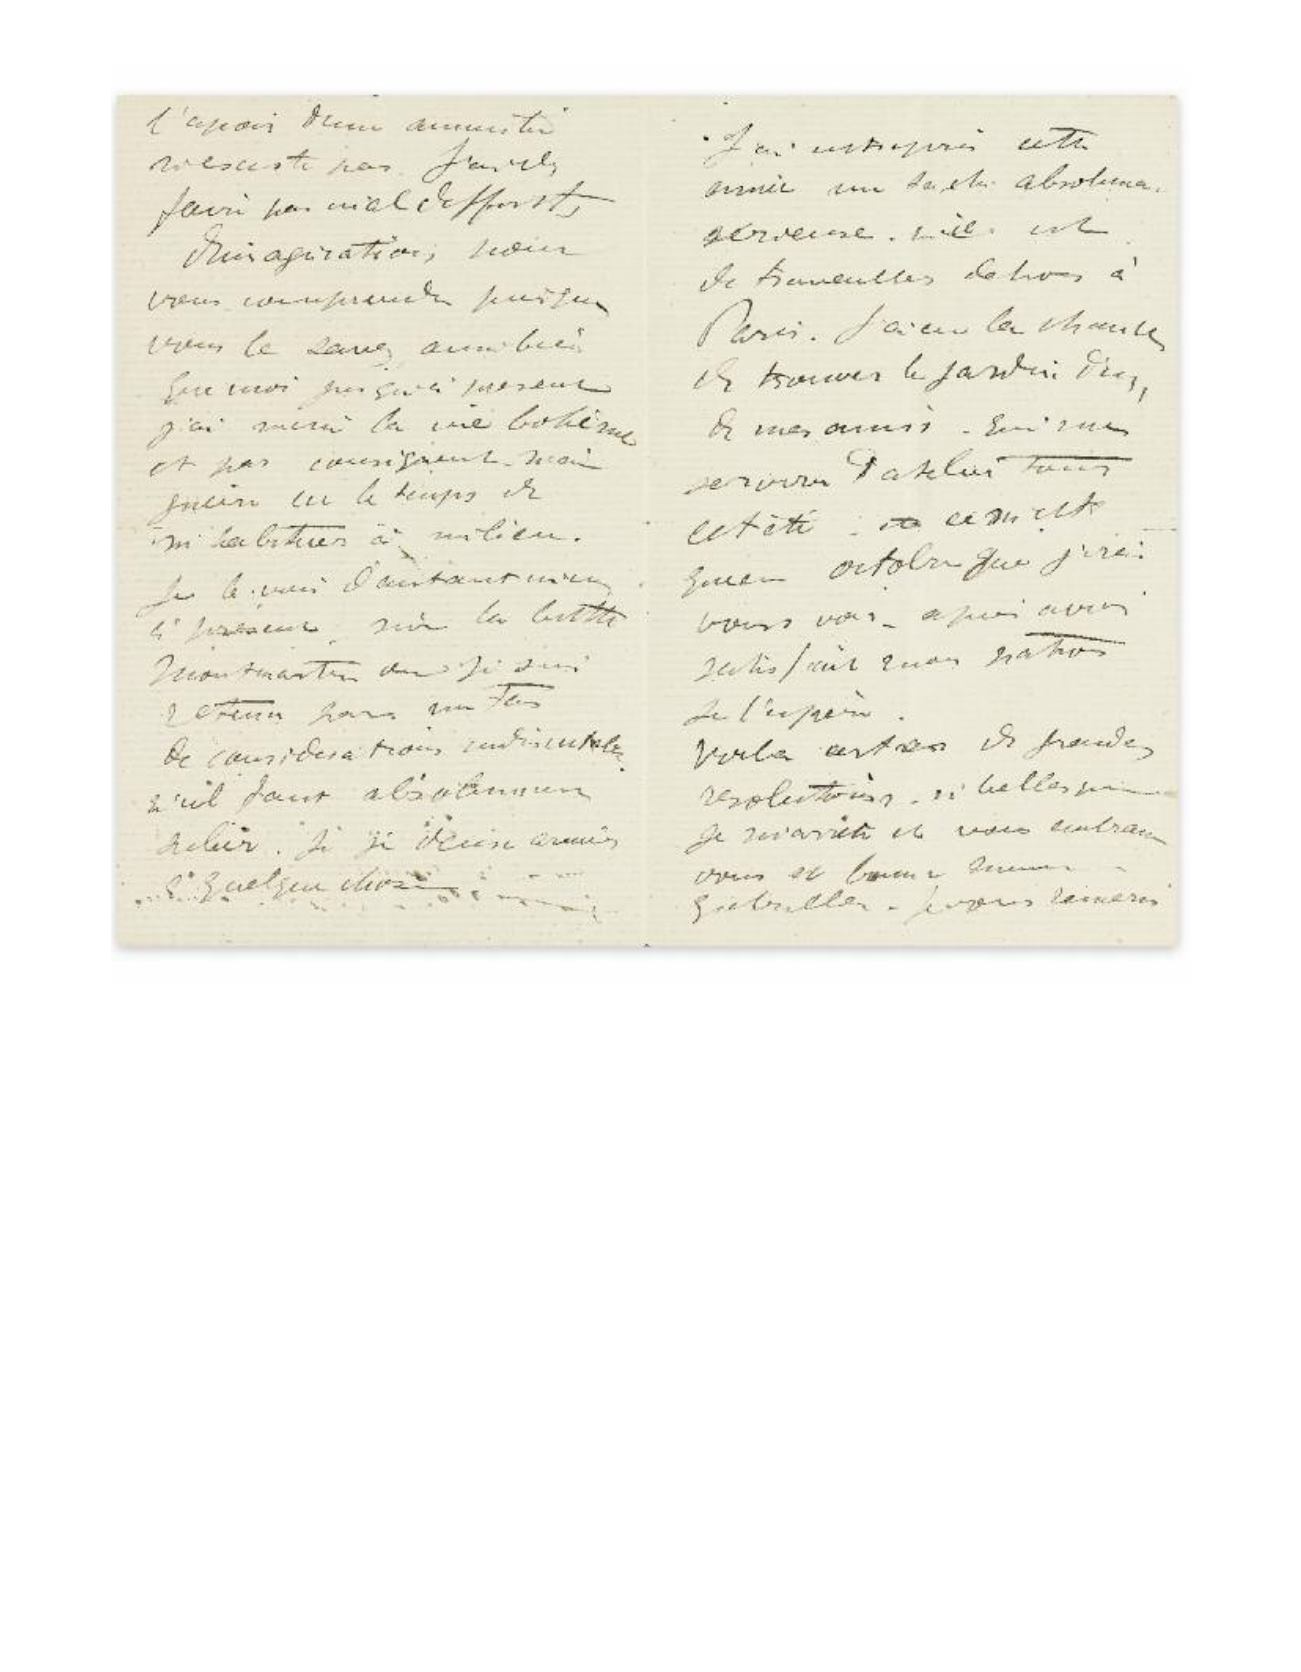 l'espoir d'une amnistie
n'existe pas. J'ai du
faire pas mal d'efforts
d'imagination, pour
vous comprendre puisque
vous le savez aussi bien
que moi jusqu'à present
j'ai mené la vie bohême
et par consequent
guère eu le temps de
m'habituer à milieu.
Je le vois d'autant mieux
à present, sur la butte
Montmartre ou je suis
retenu par un tas
de considerations indiscutables
qu'il faut absolument
subir. si je desire arriver
à quelque chose
J'ai entrepris cette
année un absolument
serieuse. est
de travailler dehors à
Paris. J'ai eu la chance
de trouver le jardin d'un
de mes amis. qui me
servira d'atelier tout
cet été. ce n'est
qu'en octobre que j'irai
vous voir. après avoir
satisfait mon
je l'espère.
Voila de grandes
resolutions. si belles que
je m'arrête et vous embrasse
vous et bonne maman
Gabrielle. Je vous remercie